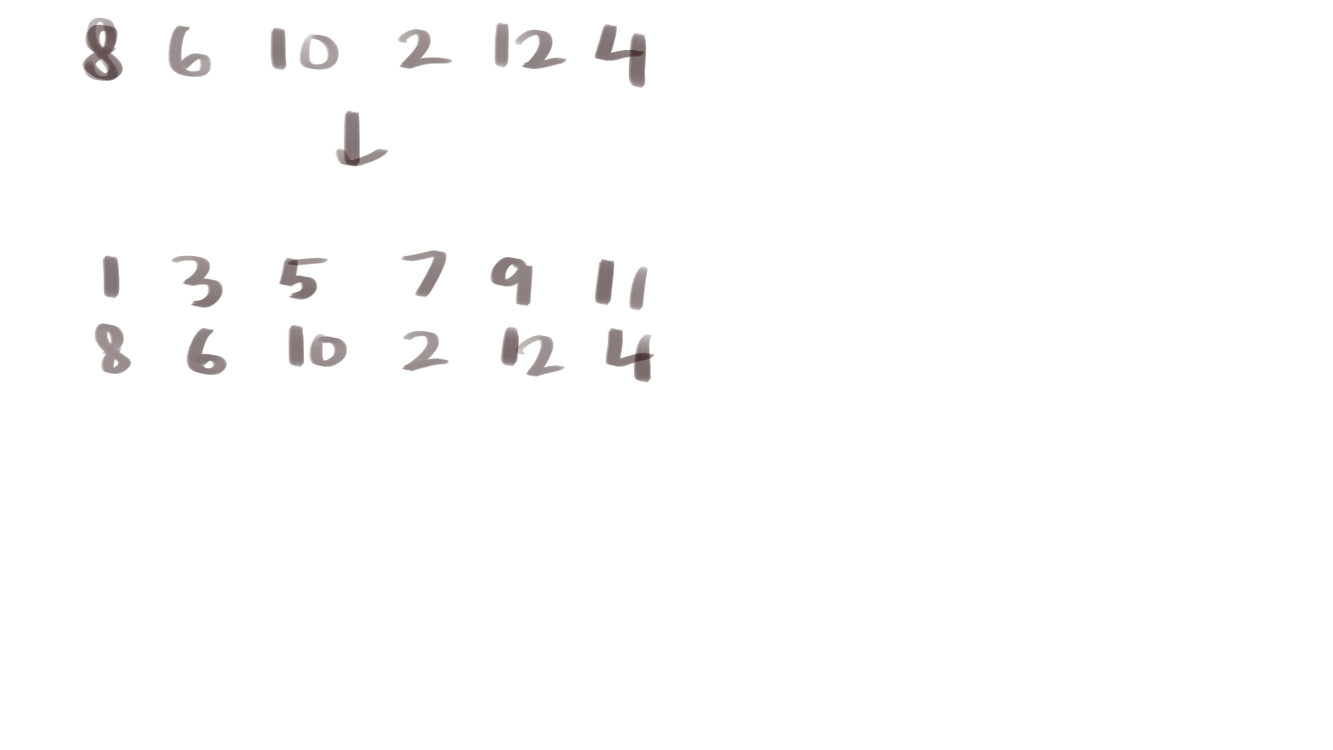 8 6 10 2 12 4
↓
1 3 5 7 9 11
8 6 10 2 12 4